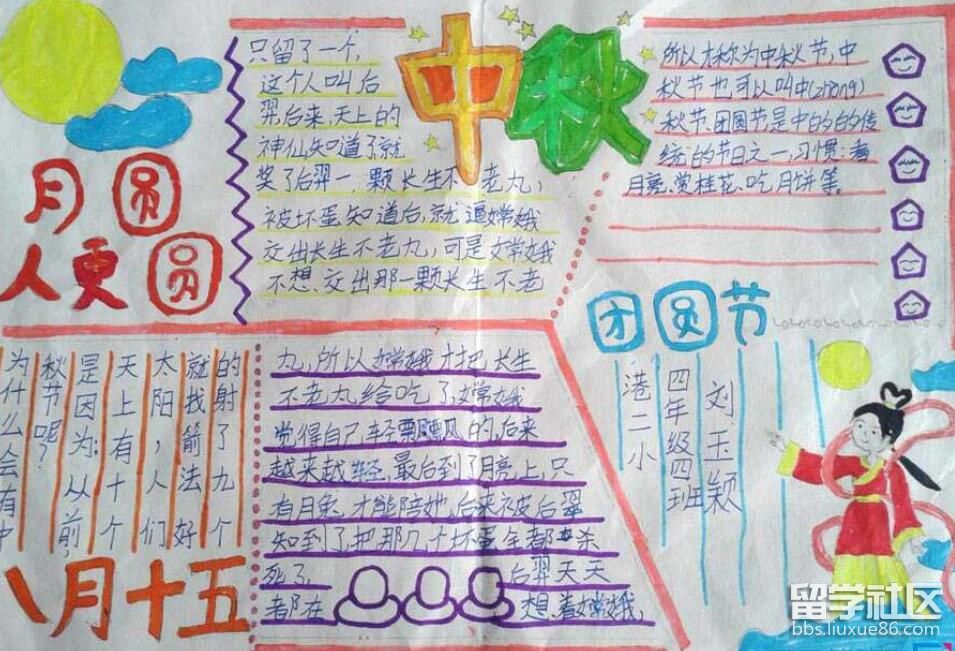 中秋
月圆
人更圆
为什么会有中
秋节呢?
是因为:从前,
天上有十个
太阳,人们
就找箭法好
的射了九个
八月十五
只留了一个,
这个人叫后
羿,后来,天上的
神仙知道了,就
奖了后羿一颗长生不老丸,
被坏蛋知道后,就逼嫦娥
交出长生不老丸,可是嫦娥
不想交出那一颗长生不老
丸,所以嫦娥才把长生
不老丸给吃了,嫦娥
觉得自己轻飘飘的,后来
越来越轻,最后到了月亮上,只
有月兔,才能陪她,后来被后羿
知到了,把那几个坏蛋全都杀
死了,后羿天天
都在想着嫦娥,
所以才称为中秋节,中
秋节也可以叫中(zhong)
秋节、团圆节是中的的的传
统的节日之一,习惯:看
月亮、赏桂花、吃月饼等。
团圆节
港二小
四年级四班
刘玉颖
留学社区
bbs.liuxue86.com